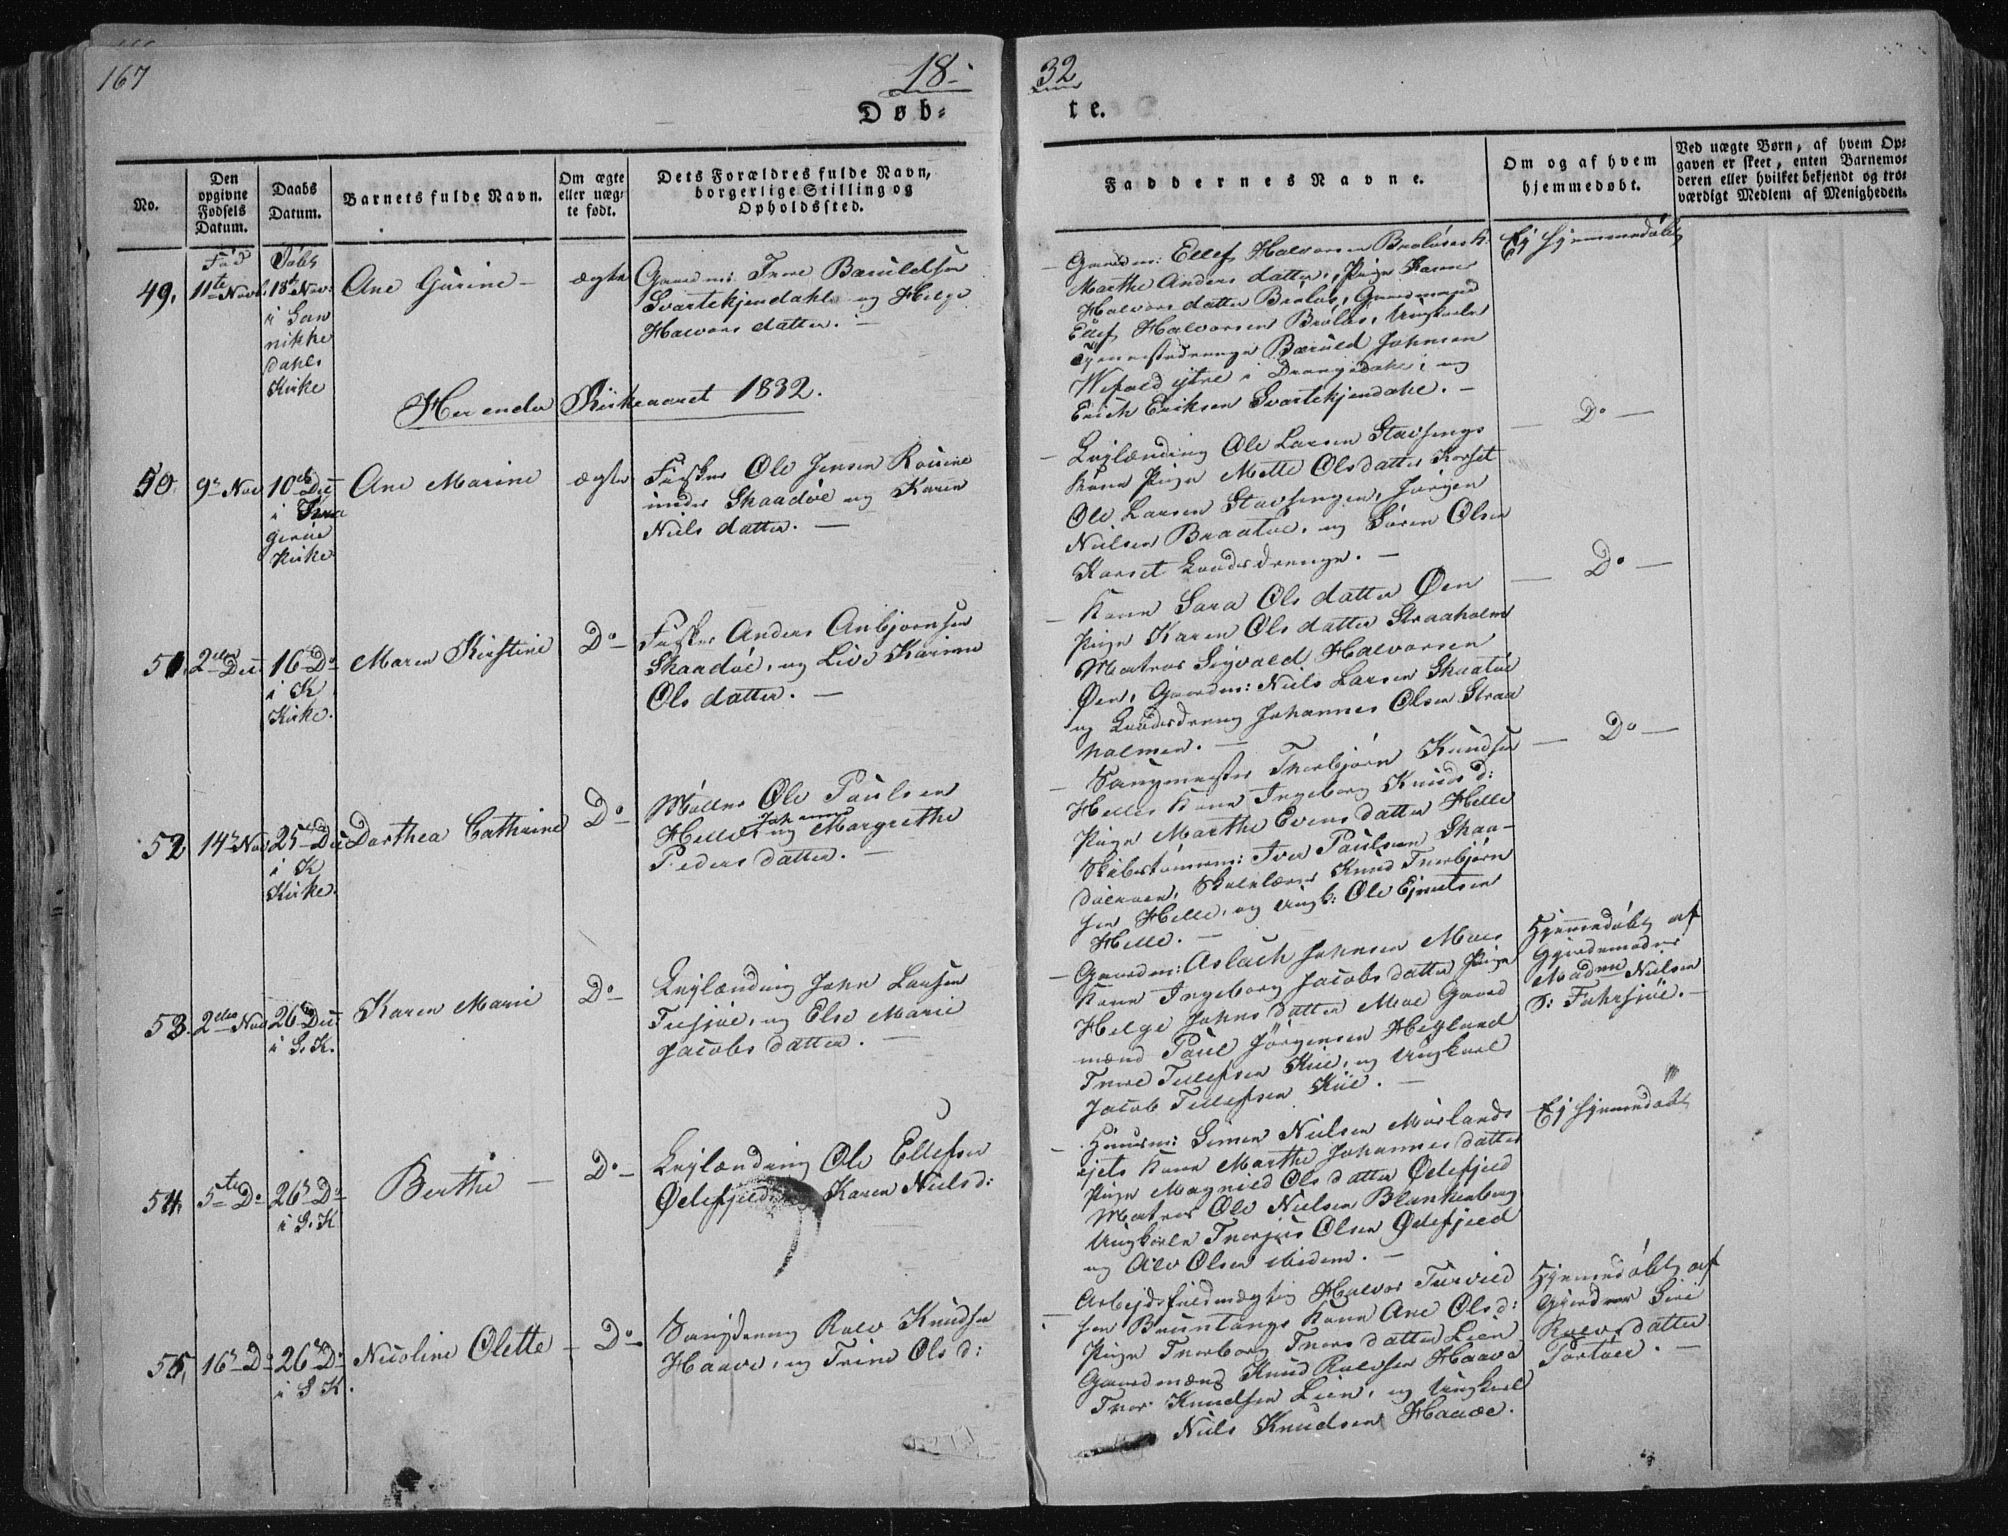 167
18
32
Døb=
te.
No.
Den
opgivne
Fødsels
Datum.
Daabs
Datum.
Barnets fulde Navn.
Om ægte
eller uæg-
te født.
Dets Forældres fulde Navn,
borgerlige Stilling og
Opholdssted.
Faddernes Navne.
Om og af hvem
hjemmedøbt.
Ved uægte Børn, af hvem Op-
gaven er skeet, enten Barnemo-
deren eller hvilket bekjendt og tro-
værdigt Medlem af Menigheden.
49.
Fød
11te Novb:
Døbt
18de Nov:
i San
nikke
dahls
Kirke
Ane Gurine —
ægte
Gaardm: Tore Baruldsen
Svartekjendahl og Helge
Halvors datter. —
— Gaardm: Ellef Halvorsen Braløsesk:
Marthe Anders datter, Pige Karen
Halvors datter Braløs, Gaardmand
Ellef Halvorsen Braløs, Ungkarle
Tjenestedrenge Bæruld Johnsen
Wefald ytre i Drangedahl; og
Erich Eriksen Svartekjendahl. —
Ej hjemmedøbt
Her ender Kirkeaaret 1832.
50.
9de Nov
10de Dec
i Kra
gerøe
Kirke
Ane Marine
ægte
Fisker Ole Jensen
under Skaadøe og Karen
Niels datter. —
— Leylænding Ole Larsen Stavsengs
Kone Pige Mette Olsdatter Korset
Ole Larsen Stavsengen, Jørgen
Nielsen Braatøe, og Søren Olsen
Korset Landsdrenge. —
— Do —
51.
2den Dec
16 Do
i K
Kirke.
Maren Kirstine
Do —
Fisker Anders Anbjørnsen
Skaadøe, og Live Karine
Ols datter. —
— Kone Sara Ols datter Øen
Pige Karen Ols datter Straaholm
Matros Sigvald Halvorsen
Øen, Gaardm: Niels Larsen Skaatøe
og Landsdreng Johannes Olsen Straa
holmen. —
— Do —
52
14de Nov
25de Dec
i K
Kirke.
Dorthea Cathrine
Do —
Møller Ole Paulsen
Helle og Johanne Margrethe
Peders datter. —
— Saugmester Thorbjørn Knudsen
Helles Kone Ingeborg Knuds d:
Pige Marthe Evens datter Helle
Skibstømmerm: Iver Paulsen Skaa-
døenaven, Skolelærer Knud Thorbjørn
sen Helle, og Ungk: Ole Ejvindsen
Helle. —
— Do —
53.
2den Nov
26de Dec
i S. K.
Karen Marie
Do —
Leylænding John Larsen
Tisjøe, og Else Marie
Jacobs datter. —
— Gaardm: Aslach Johnsen Moes
Kone Ingeborg Jacobs datter Pige
Helge Johns datter Moe Gaard
mænd Paul Jörgensen Hegland
Tore Tellefsen Kiil, og Ungkarl
Jacob Tellefsen Kiil. —
Hjemmedøbt af
Gjordemoder
Madme Nielsen
p: Farsjøe. —
54.
5te Do
26de Do
i S. K
Berthe —
Do —
Leylænding Ole Ellefsen
Ødefjeld og Karen Niels d:
— Huusm: Simen Nielsen Morlands
ejets Kone Marthe Johannes datter
Pige Magnild Ols datter Ødefjeld
Matros Ole Nielsen Blankenberg
Ungkarle Thorjus Olsen Ødefjeld
og Alv Olsen ibidem. —
Ej hjemmedøbt
55.
16de Do
26de Do
i S K.
Nicoline Olette —
Do —
Saugdreng Rolv Knudsen
Haave, og Trine Ols d:
Arbejdsfuldmægtig Halvor Turvild
sen Bruntangs Kone Ane Ols d:
Pige Thorborg Thors datter Lien
Gaardmænd Knud Rolvsen Haave
Thor Knudsen Lien, og Ungkarl
Niels Knudsen Haave.
Hjemmedøbt af
Gjordmor Siri
Rolvsdatter
Tortøe. —